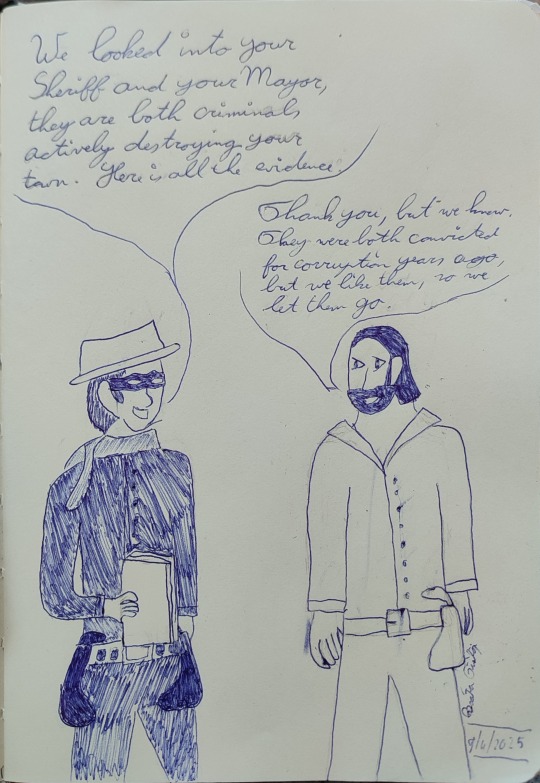 We looked into your
Sheriff and your Mayor,
they are both criminals
actively destroying your
town. Here is all the evidence.
Thank you, but we know.
They were both convicted
for corruption years ago,
but we like them, so we
let them go.
9/4/2025